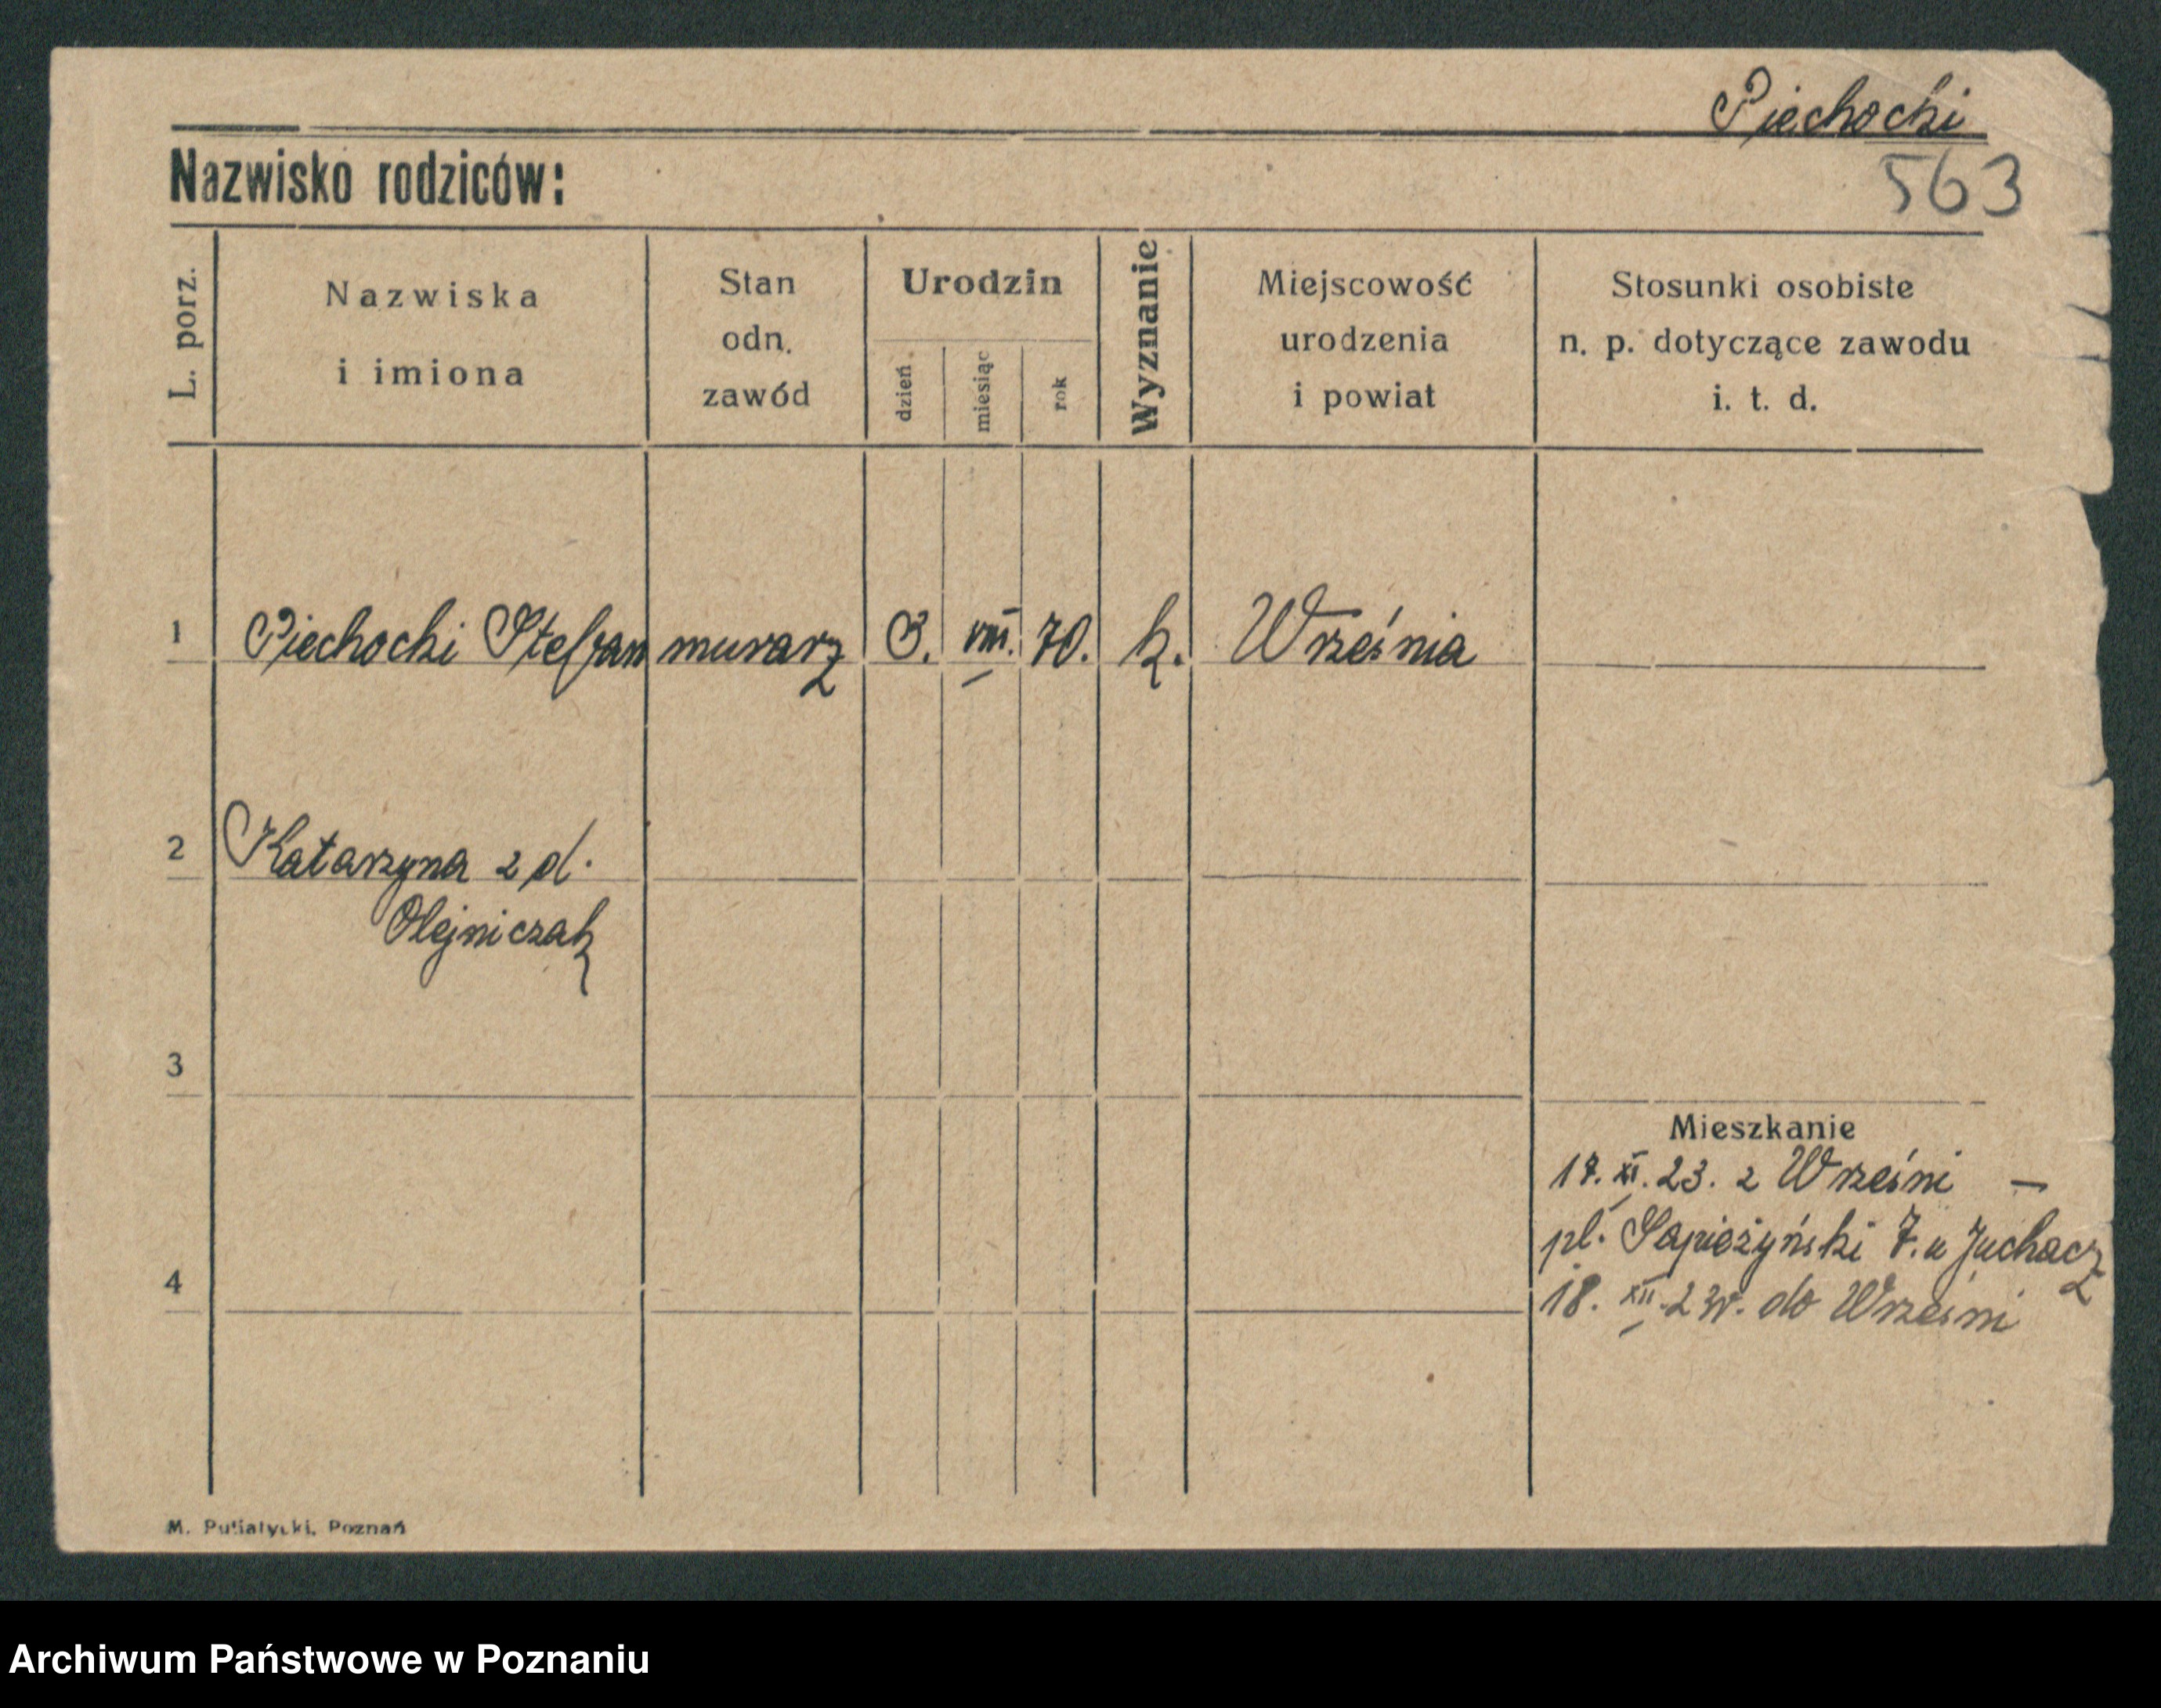 Piechocki
Nazwisko rodziców:
563
L. porz.
Nazwiska
i imiona
Stan
odn.
zawód
Urodzin
dzień
miesiąc
rok
Wyznanie
Miejscowość
urodzenia
i powiat
Stosunki osobiste
n. p. dotyczące zawodu
i. t. d.
1 Piechocki Stefan murarz 3. VIII. 70. k. Września
2 Katarzyna z d.
Olejniczak
3
Mieszkanie
17. XI. 23. z Wrześni —
pl. Sapieżyński 7. u Juchacz
4
18. XII. 23r. do Wrześni
M. Putiatycki, Poznań
Archiwum Państwowe w Poznaniu